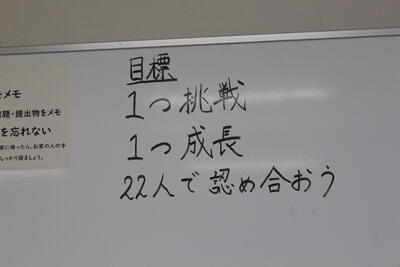 目標
1つ挑戦
1つ成長
22人で認め合おう
をメモ
題・提出物をメモ
を忘れない
家に帰ったら、お家の人の手
しっかり寝ましょう。